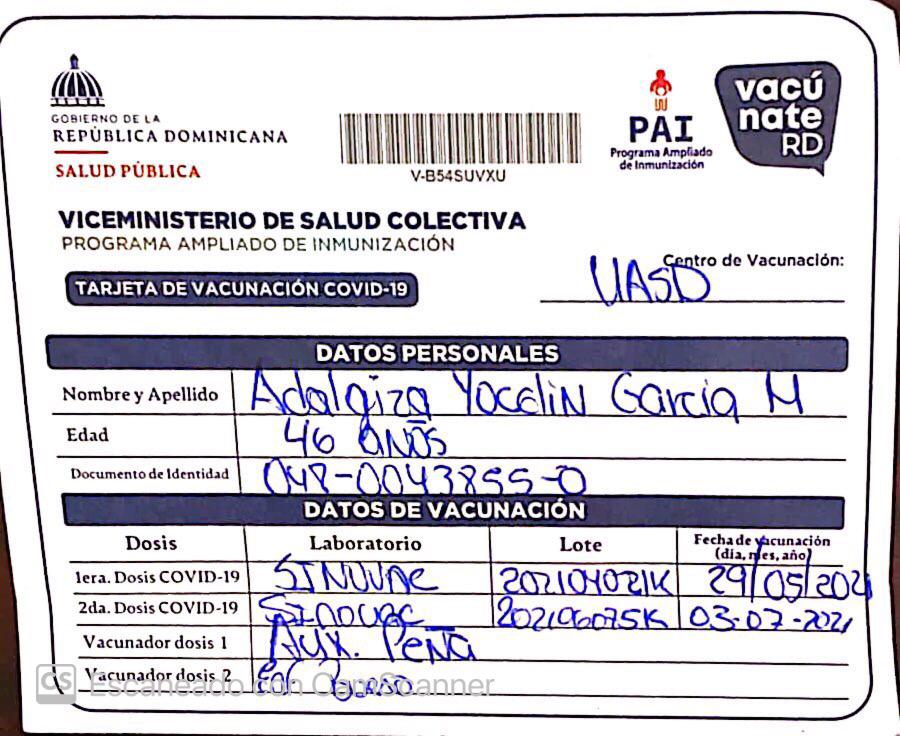 GOBIERNO DE LA
REPÚBLICA DOMINICANA
SALUD PÚBLICA
V-B54SUVXU
PAI
Programa Ampliado
de Inmunización
vacú
nate
RD
VICEMINISTERIO DE SALUD COLECTIVA
PROGRAMA AMPLIADO DE INMUNIZACIÓN
TARJETA DE VACUNACIÓN COVID-19
Centro de Vacunación:
UASD
DATOS PERSONALES
Nombre y Apellido Adalgiza Yocelin Garcia M
Edad 46 años
Documento de Identidad 048-0043855-0
DATOS DE VACUNACIÓN
Dosis Laboratorio Lote Fecha de vacunación
(día, mes, año)
1era. Dosis COVID-19 SINOVAC 202104021K 29/05/2021
2da. Dosis COVID-19 Sinovac 202106075K 03-07-2021
Vacunador dosis 1 Aux. Peña
Vacunador dosis 2
CS Escaneado con CamScanner